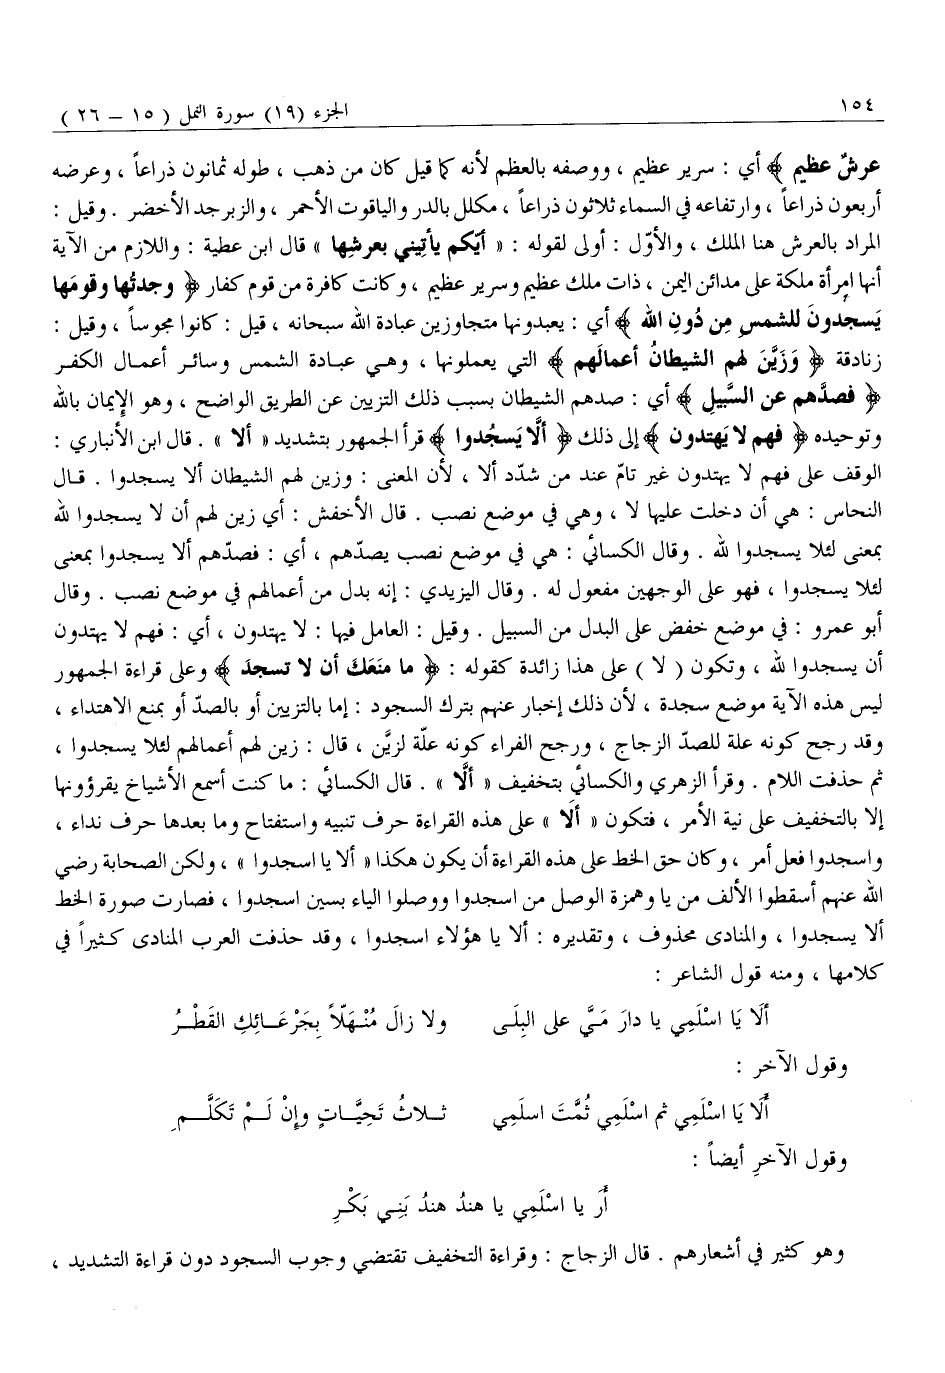 ١٥٤
الجزء (١٩) سورة النمل ( ١٥ – ٢٦ )
عرشٌ عظيم ﴾ أي : سرير عظيم ، ووصفه بالعظم لأنه كما قيل كان من ذهب ، طوله ثمانون ذراعاً ، وعرضه
أربعون ذراعاً ، وارتفاعه في السماء ثلاثون ذراعاً ، مكلل بالدر والياقوت الأحمر ، والزبرجد الأخضر . وقيل :
المراد بالعرش هنا الملك ، والأوّل : أولى لقوله : « أيّكم يأتيني بعرشها » قال ابن عطية : واللازم من الآية
أنها امرأة ملكة على مدائن اليمن ، ذات ملك عظيم وسرير عظيم ، وكانت كافرة من قوم كفار ﴿ وجدتُها وقومَها
يَسجدونَ للشمسِ مِن دُونِ الله ﴾ أي : يعبدونها متجاوزين عبادة الله سبحانه ، قيل : كانوا مجوساً ، وقيل :
زنادقة ﴿ وَزَيَّنَ لهم الشيطانُ أعمالَهم ﴾ التي يعملونها ، وهي عبادة الشمس وسائر أعمال الكفر
﴿ فصدَّهم عن السَّبيلِ ﴾ أي : صدهم الشيطان بسبب ذلك التزيين عن الطريق الواضح ، وهو الإيمان بالله
وتوحيده ﴿ فهم لا يَهتدون ﴾ إلى ذلك ﴿ ألَّا يَسجُدوا ﴾ قرأ الجمهور بتشديد « ألا » . قال ابن الأنباري :
الوقف على فهم لا يهتدون غير تامّ عند من شدّد ألا ، لأن المعنى : وزين لهم الشيطان ألا يسجدوا . قال
النحاس : هي أن دخلت عليها لا ، وهي في موضع نصب . قال الأخفش : أي زين لهم أن لا يسجدوا لله
بمعنى لئلا يسجدوا لله . وقال الكسائي : هي في موضع نصب يصدّهم ، أي : فصدّهم ألا يسجدوا بمعنى
لئلا يسجدوا ، فهو على الوجهين مفعول له . وقال اليزيدي : إنه بدل من أعمالهم في موضع نصب . وقال
أبو عمرو : في موضع خفض على البدل من السبيل . وقيل : العامل فيها : لا يهتدون ، أي : فهم لا يهتدون
أن يسجدوا لله ، وتكون ( لا ) على هذا زائدة كقوله : ﴿ ما منعَك أن لا تسجدَ ﴾ وعلى قراءة الجمهور
ليس هذه الآية موضع سجدة ، لأن ذلك إخبار عنهم بترك السجود : إما بالتزيين أو بالصدّ أو بمنع الاهتداء ،
وقد رجح كونه علة للصدّ الزجاج ، ورجح الفراء كونه علّة لزيَّن ، قال : زين لهم أعمالهم لئلا يسجدوا ،
ثم حذفت اللام . وقرأ الزهري والكسائي بتخفيف « ألَّا » . قال الكسائي : ما كنت أسمع الأشياخ يقرؤونها
إلا بالتخفيف على نية الأمر ، فتكون « ألَا » على هذه القراءة حرف تنبيه واستفتاح وما بعدها حرف نداء ،
واسجدوا فعل أمر ، وكان حق الخط على هذه القراءة أن يكون هكذا « ألا يا اسجدوا » ، ولكن الصحابة رضي
الله عنهم أسقطوا الألف من يا وهمزة الوصل من اسجدوا ووصلوا الياء بسين اسجدوا ، فصارت صورة الخط
ألا يسجدوا ، والمنادى محذوف ، وتقديره : ألا يا هؤلاء اسجدوا ، وقد حذفت العرب المنادى كثيراً في
كلامها ، ومنه قول الشاعر :
ألَا يَا اسْلَمِي يا دارَ مَيَّ على البِلَى ولا زالَ مُنْهَلّاً بِجَرْعَائِكِ القَطْرُ
وقول الآخر :
أَلَا يَا اسْلَمِي ثم اسْلَمِي ثُمَّتَ اسلَمِي ثلاثُ تَحِيَّاتٍ وإنْ لَمْ تَكَلَّمِ
وقول الآخرِ أيضاً :
أَر يا اسْلَمِي يا هندُ هندُ بَنِي بَكْرِ
وهو كثير في أشعارهم . قال الزجاج : وقراءة التخفيف تقتضي وجوب السجود دون قراءة التشديد ،